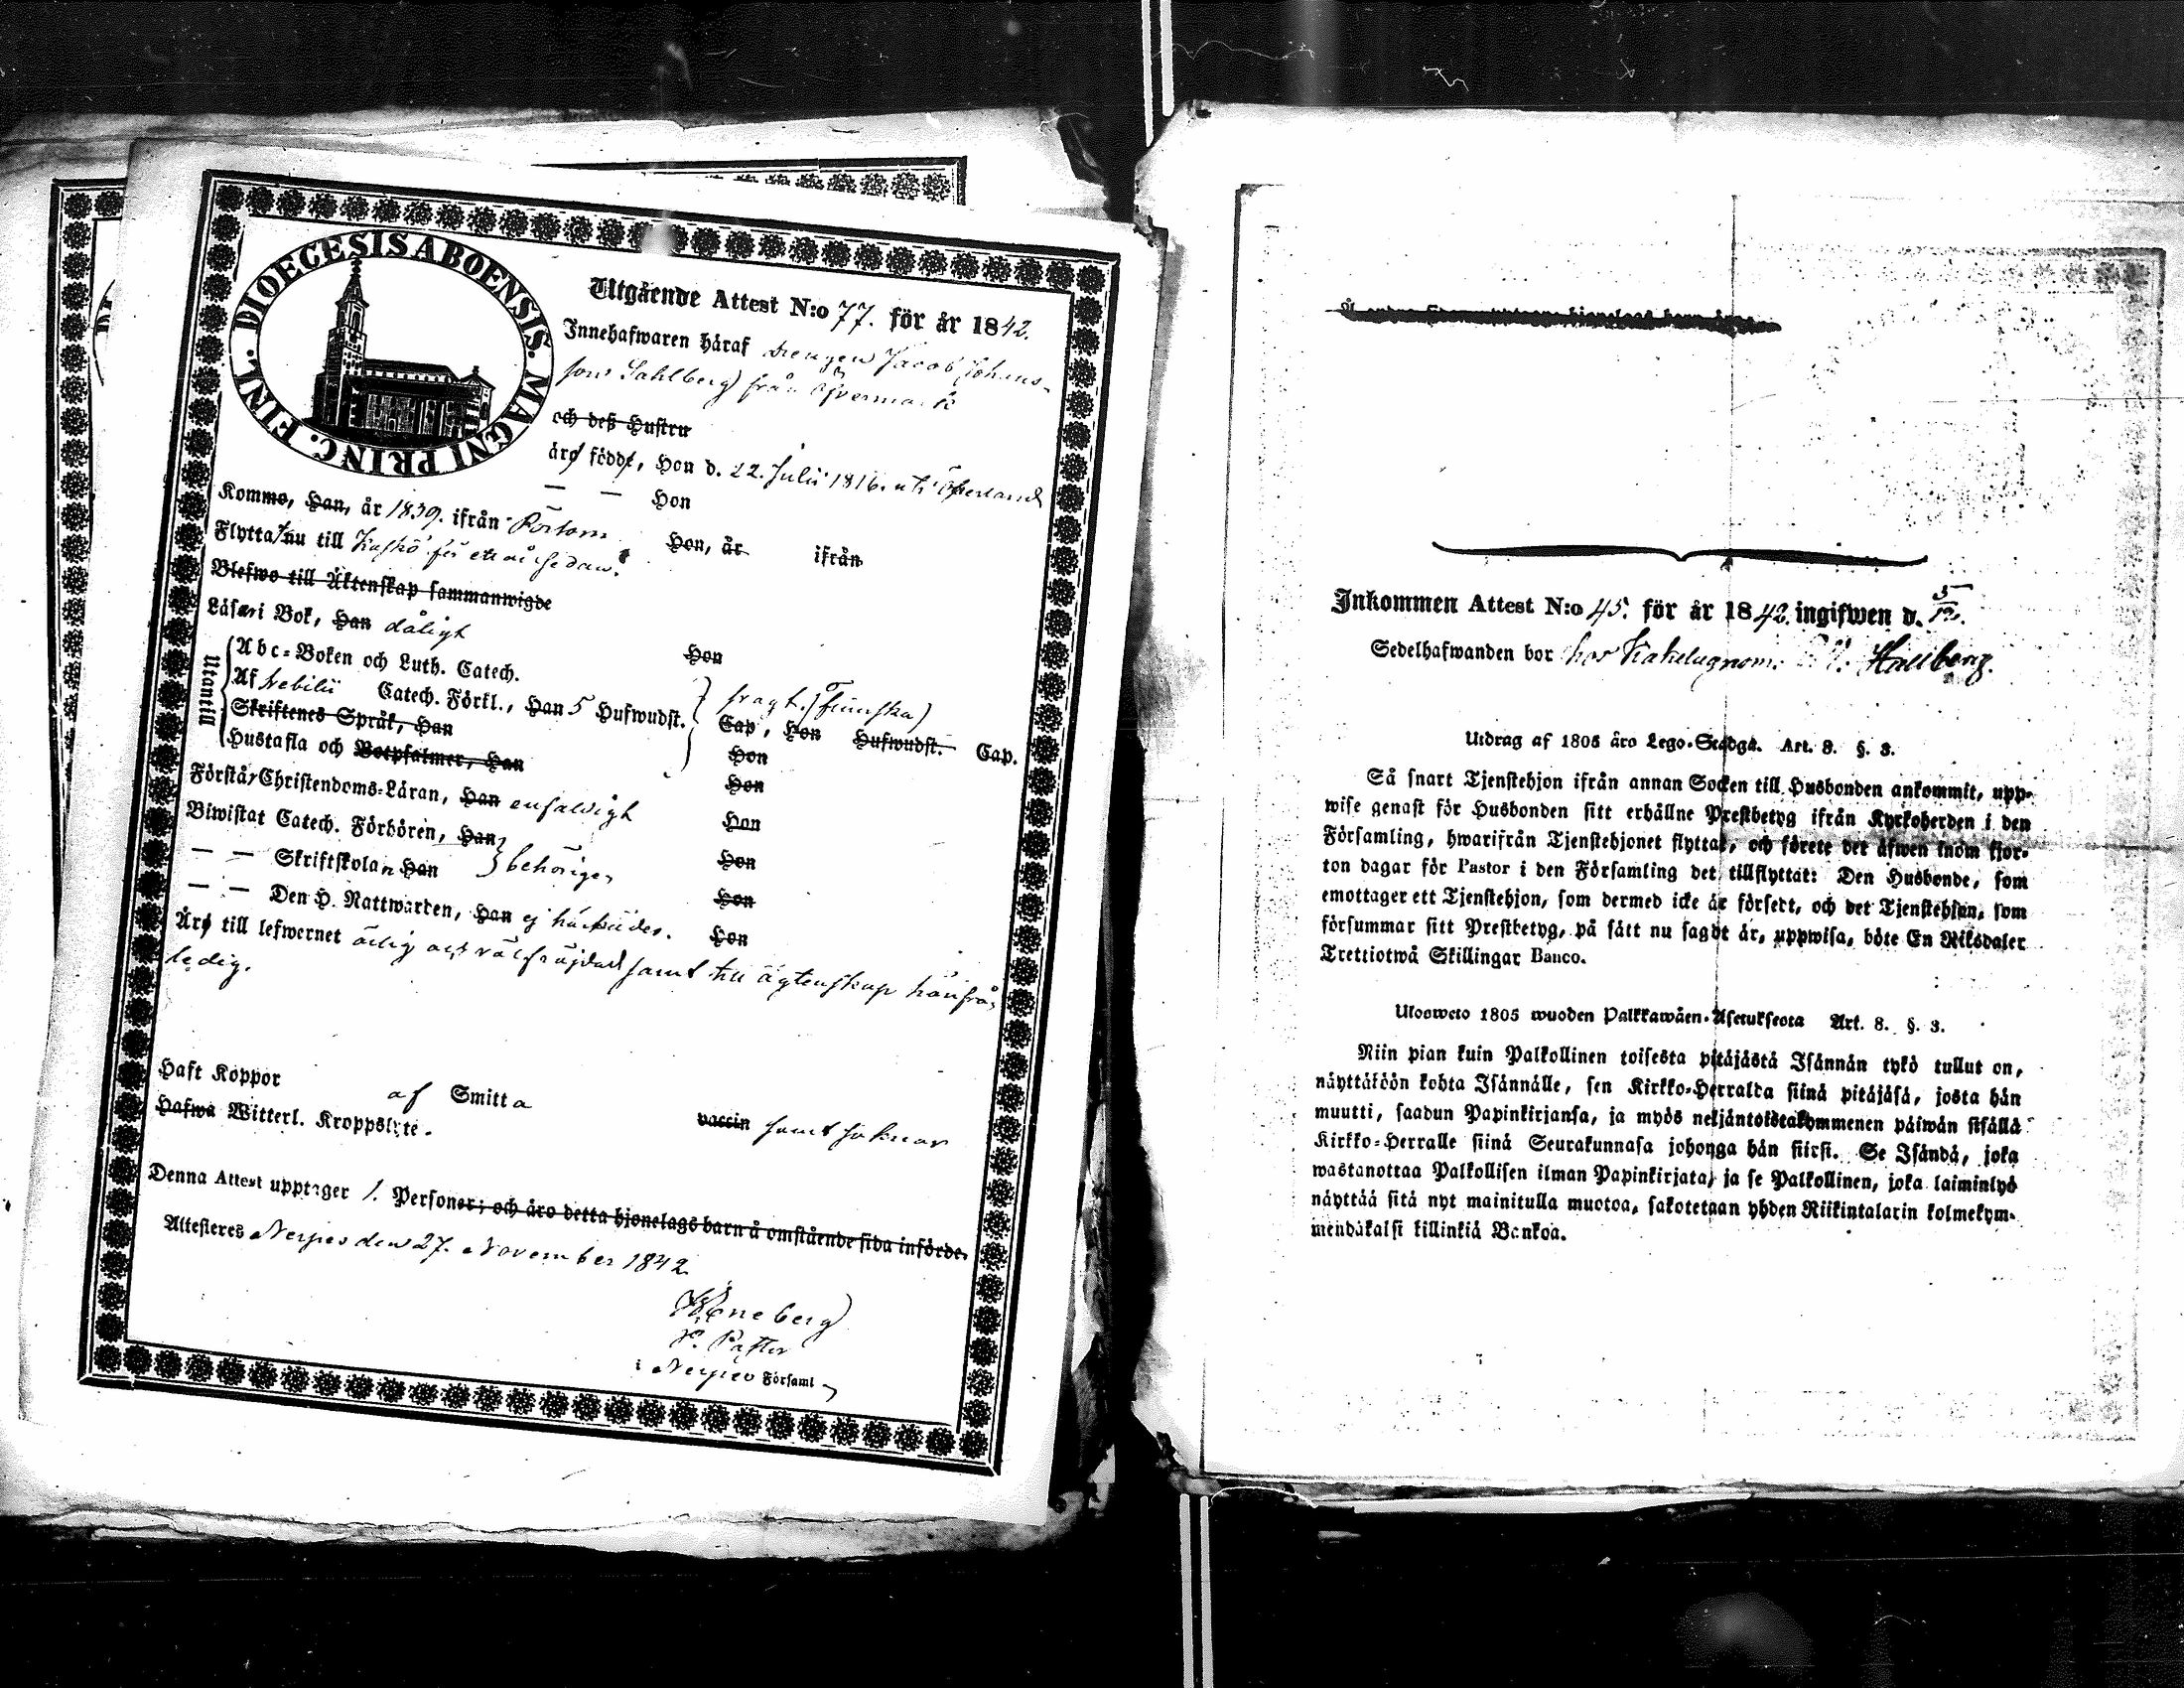 DIOECESIS ABOENSIS. MAGNI PRINC. FINL.
Utgående Attest N:o 77. för år 1842.
Innehafwaren häraf drengen Jacob Johans-
son Sahlberg från Öfvermark
och deß Hustru
äro födde, Hon d. 22. Julii 1816. uti
— — Hon
Kommo, Han, år 1839. ifrån Pörtom Hon, år ifrån
Flytta nu till Kaskö för ett år sedan.
Blefwo till Äktenskap sammanwigde
Läsa i Bok, Han dåligt Hon
Utantill
Abc-Boken och Luth. Catech.
Af Svebilii Catech. Förkl., Han 5 Hufwudst. Cap, Hon Hufwudst. Cap.
svagt. (finska)
Skriftenes Språk, Han Hon
Hustafla och Botpsalmer, Han Hon
Förstår Christendoms-Läran, Han enfaldigt Hon
Biwistat Catech. Förhören, Han Hon
— — Skriftskolan Han behörigen Hon
— — Den H. Nattwarden, Han ej Hon
Äro till lefwernet ärlig och välfräjdad samt till ägtenskap härifrån
ledig.
Haft Koppor af Smitta vaccin samt saknar
Hafwa Witterl. Kroppslyte.
Denna Attest upptager 1. Personer; och äro detta hjonelags barn å omstående sida införde.
Attesteras Nerpes den 27. November 1842.
Pastor
i Nerpes Församl
Inkommen Attest N:o 45. för år 1842. ingifwen d. 5/12.
Sedelhafwanden bor hos Kakelugnsm. Hallberg.
Utdrag af 1805 åro Lego-Stadga. Art. 8. §. 3.
Så snart Tjenstehjon ifrån annan Socken till Husbonden ankommit, upp-
wise genast för Husbonden sitt erhållne Prestbetyg ifrån Kyrkoherden i den
Församling, hwarifrån Tjenstehjonet flyttat, och förete det äfwen inom fjor-
ton dagar för Pastor i den Församling det tillflyttat: Den Husbonde, som
emottager ett Tjenstehjon, som dermed icke är försedt, och det Tjenstehjon, som
försummar sitt Prestbetyg, på sätt nu sagdt är, uppwisa, böte En Riksdaler
Trettiotwå Skillingar Banco.
Ulosweto 1805 wuoden Palkkawäen-Asetuksesta Art. 8. §. 3.
Niin pian kuin Palkollinen toisesta pitäjästä Isännän tykö tullut on,
näyttäköön kohta Isännälle, sen Kirkko-Herralta siinä pitäjäsä, josta hän
muutti, saadun Papinkirjansa, ja myös neljäntoistakymmenen päiwän sisällä
Kirkko-Herralle siinä Seurakunnasa johonga hän siirsi. Se Isändä, joka
wastanottaa Palkollisen ilman Papinkirjata, ja se Palkollinen, joka laiminlyö
näyttää sitä nyt mainitulla muotoa, sakotetaan yhden Riikintalarin kolmekym-
mendäkaksi killinkiä Bankoa.